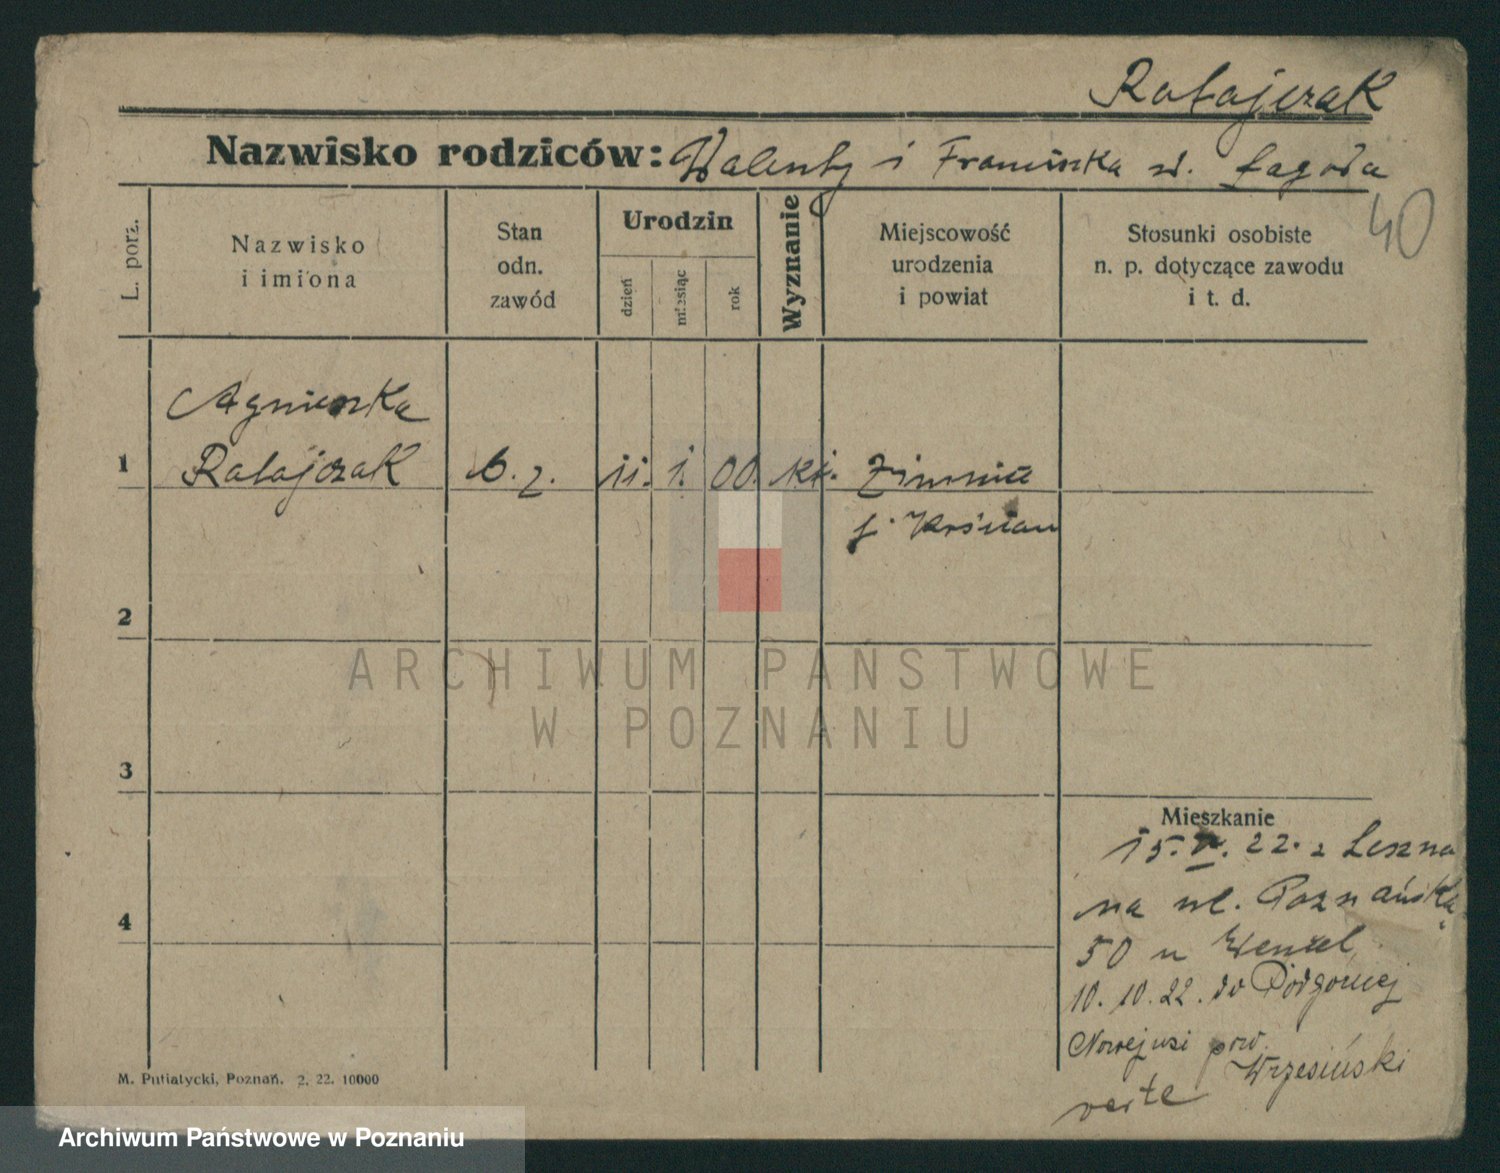 Ratajczak
Nazwisko rodziców: Walenty i Franciszka zd. Łagoda
40
L. porz.
Nazwisko
i imiona
Stan
odn.
zawód
Urodzin
dzień
miesiąc
rok
Wyznanie
Miejscowość
urodzenia
i powiat
Stosunki osobiste
n. p. dotyczące zawodu
i t. d.
Agnieszka
1 Ratajczak b. z. 11. 1. 00. kt. Zimnice
p. Kościan
2
3
4
ARCHIWUM PAŃSTWOWE
W POZNANIU
Mieszkanie
15. V. 22. z Leszna
na ul. Poznańska
50 u Wenzel
10. 10. 22. do Podgórnej
Nowejwsi pow.
Wrzesiński
verte
M. Putiatycki, Poznań. 2. 22. 10000
Archiwum Państwowe w Poznaniu